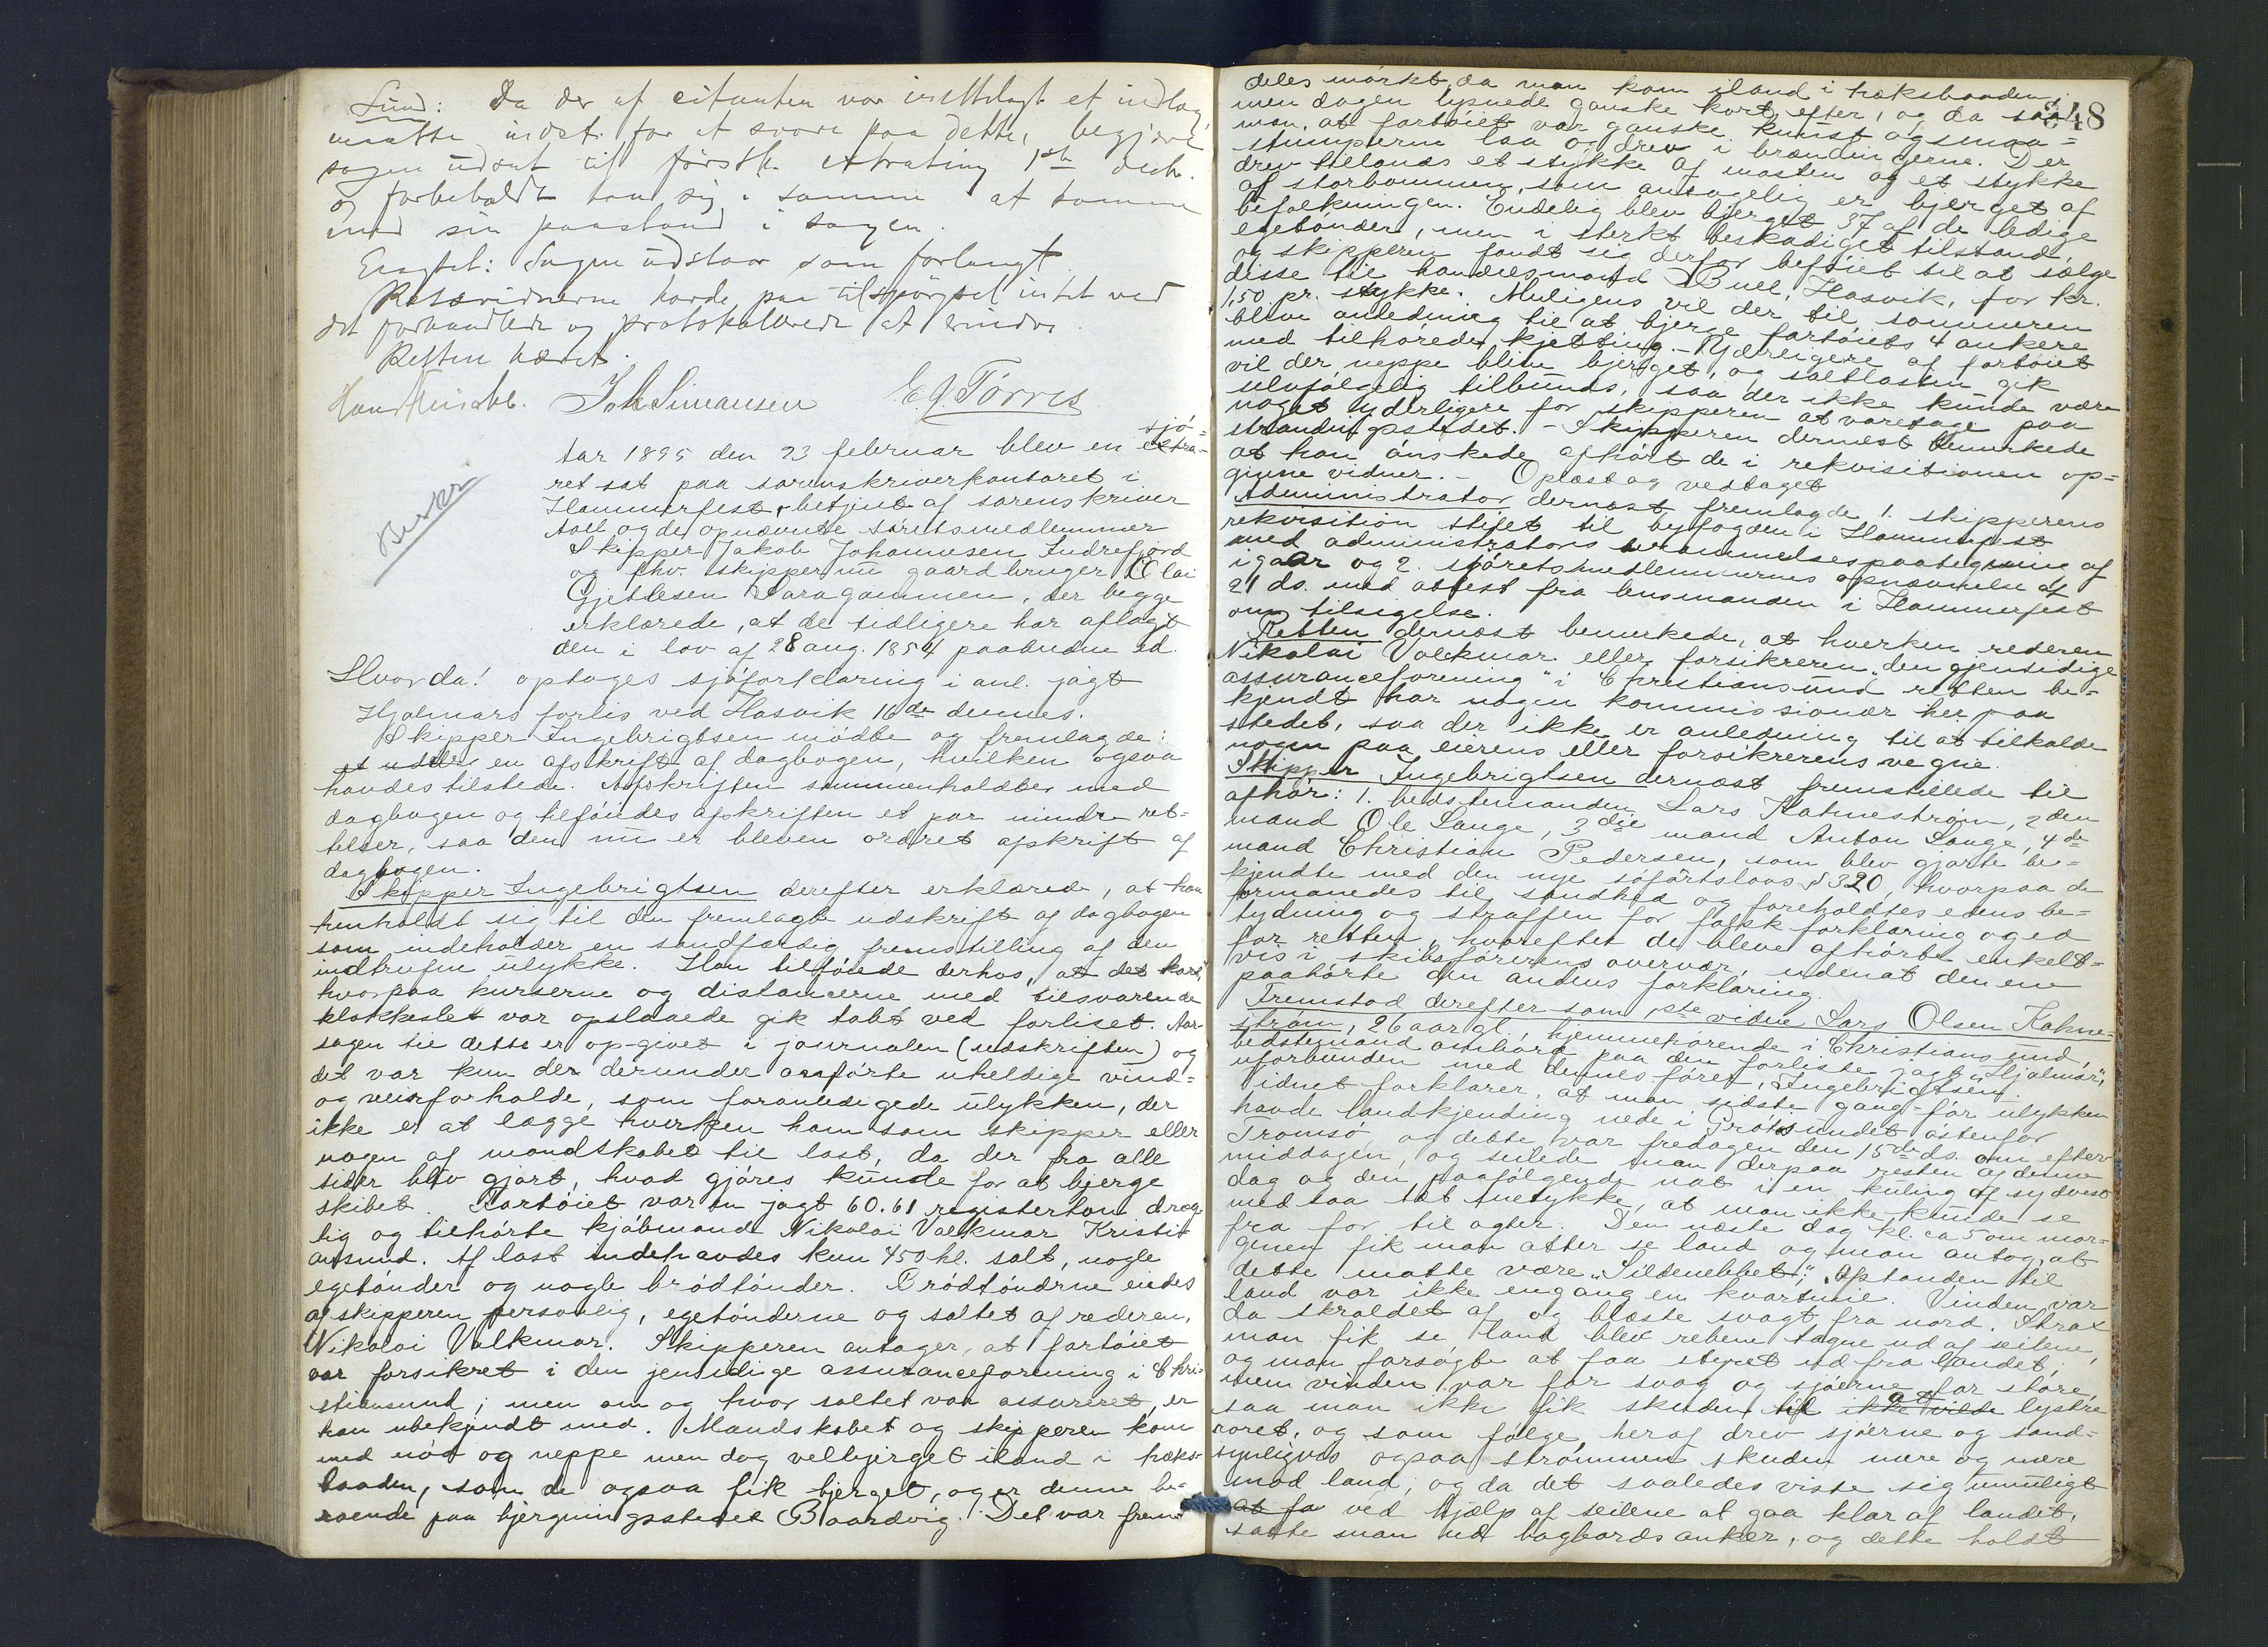 Lund: Da der af citanten var irettelagt et indlæg
maatte indst. for at svare paa dette, begjære
sagen udsat til førstk. extrating 1ste
og forbeholdt han sig i samme at komme
med sin paastand i sagen.
Eragtet: Sagen udstaar som forlangt.
Retsvidnerne havde paa tilspørgsel intet ved
det forhandlede og protokollerede at erindre.
Retten hævet.
Joh Simensen E. A. Tørres
Aar 1895 den 23 februar blev en extra- sjø-
ret sat paa sorenskriverkontoret i
Hammerfest, betjent af sorenskriver
og de opnævnte søretsmedlemmer
Skipper Jakob Johannesen Indrefjord
og fhv. skipper nu gaardbruger Olai
Gjetlesen Saragammen, der begge
erklærede, at de tidligere har aflagt
den i lov af 28 aug. 1854 paabudne ed.
Hvorda! optoges sjøforklaring i anl. jagt
Hjalmars forlis ved Hasvik 16de dennes.
Skipper Ingebrigtsen mødte og fremlagde:
et uds en afskrift af dagbogen, hvilken ogsaa
havdes tilstede. Afskriften sammenholdtes med
dagbogen og tilføiedes afskriften et par mindre ret-
telser, saa den nu er bleven ordret afskrift af
dagbogen.
Skipper Ingebrigtsen derefter erklærede, at han
henholdt sig til den fremlagte udskrift af dagbogen
som indeholder en sandfærdig fremstilling af den
indtrufne ulykke. Han tilføiede derhos, at det kart,
hvorpaa kurserne og distancerne med tilsvarende
klokkeslet var opslaaede gik tabt ved forliset. Aar-
sagen til dette er op-givet i journalen (udskriften) og
det var kun de derunder anførte uheldige vind-
og veirforholde, som foranledigede ulykken, der
ikke er at lægge hverken ham som skipper eller
nogen af mandskabet til last, da der fra alle
sider blev gjort, hvad gjøres kunde for at bjerge
skibet. Fartøiet var en jagt 60.61 registerton dræg-
tig og tilhørte kjøbmand Nikolai Volkmar Kristi-
ansund. Af last indehavdes kun 450 hl. salt, nogle
egetønder og nogle brødtønder. Brødtønderne eiedes
af skipperen personlig, egetønderne og saltet af rederen,
Nikolai Volkmar. Skipperen antager, at fartøiet
var forsikret i den jensidige assuranceforening i Chri-
stiansund; men om og hvor saltet var assureret, er
han ubekjendt med. Mandskabet og skipperen kom
med nød og neppe men dog velbjerget iland i hæks-
baaden, som de ogsaa fik bjerget, og er denne be-
roende paa bjergningsstedet Baardvig. Det var frem-
348
deles mørkt, da man kom iland i hæksbaaden,
men dagen lysnede ganske kort efter, og da saa
man, at fartøiet var ganske knust og smaa-
stumperne laa og drev i brændingerne. Der
drev tillands et stykke af masten og et stykke
af storbommen, som antagelig er bjerget af
befolkningen. Endelig blev bjerget 37 af de ledige
egetønder, men i sterkt beskadiget tilstand,
og skipperen fandt sig derfor beføiet til at sælge
disse til handelsmand Buell, Hasvik, for kr.
1,50 pr. stykke. Muligens vil der til sommeren
blive anledning til at bjerge fartøiets 4 ankere
med tilhørende kjetting. - Yderligere af fartøiet
vil der neppe blive bjerget, og saltlasten gik
selvfølgelig tilbunds, saa der ikke kunde være
noget yderligere for skipperen at varetage paa
strandingsstedet. - Skipperen dernæst bemerkede
at han ønskede afhørt de i rekvisitionen op-
givne vidner. - Oplæst og vedtaget
Administrator dernæst fremlagde 1. skipperens
rekvisition stilet til byfogden i Hammerfest
med administrators berammelsespaategning af
igaar og 2. sjøretsmedlemmernes opnævnelse af
21 ds. med attest fra lensmanden i Hammerfest
om tilsigelse.
Retten dernæst bemerkede, at hverken rederen
Nikolai Volkmar eller forsikreren "den gjensidige
assuranceforening" i Christiansund retten be-
kjendt har nogen kommissionær her paa
stedet, saa der ikke er anledning til at tilkalde
nogen paa eierens eller forsikrerens vegne.
Skipper Ingebrigtsen dernæst fremstillede til
afhør: 1. bedstemanden Lars Kahnestrøm, 2den
mand Ole Lange, 3die mand Anton Lange, 4de
mand Christian Pedersen, som blev gjorte be-
kjendte med den nye søfartslovs § 320, hvorpaa de
formanedes til sandhed og foreholdtes edens be-
tydning og straffen for falsk forklaring og ed
for retten, hvorefter de bleve afhørte enkelt-
vis i skibsførerens overvær, udenat den ene
paahørte den andens forklaring.
Fremstod derefter som 1ste vidne Lars Olsen Kahne-
strøm, 26 aar gl., hjemmehørende i Christiansund,
bedstemand ombord paa den forliste jagt "Hjalmar",
uforbunden med dennes fører, Ingebrigtsen.
idnet forklarer, at man sidste gang før ulykken
havde landkjending nede i Grøtsundet østenfor
Tromsø, og dette var fredagen den 15de ds. om efter-
middagen, og seilede man derpaa resten af denne
dag og den paafølgende nat i en kuling af sydvest
med saa tæt snetykke, at man ikke kunde se
fra for til agter. Den næste dag kl. ca 5 om mor-
genen fik man atter se land og man antog, at
dette maatte være "Sildenebbet"; Afstanden til
land var ikke engang en kvartmil. Vinden var
da skraldet af og blæste svagt fra nord. Strax
man fik se land blev rebene tagne ud af seilene,
og man forsøgte at faa styret ud fra landet,
men vinden var for svag og sjøerne for store,
saa man ikke fik skuden til ikke vilde at lystre
roret, og som følge heraf drev sjøerne og sand-
synligvis ogsaa strømmen skuden mere og mere
mod land; og da det saaledes viste sig umuligt
at fa ved hjælp af seilene at gaa klar af landet,
satte man ud bagbords anker, og dette holdt